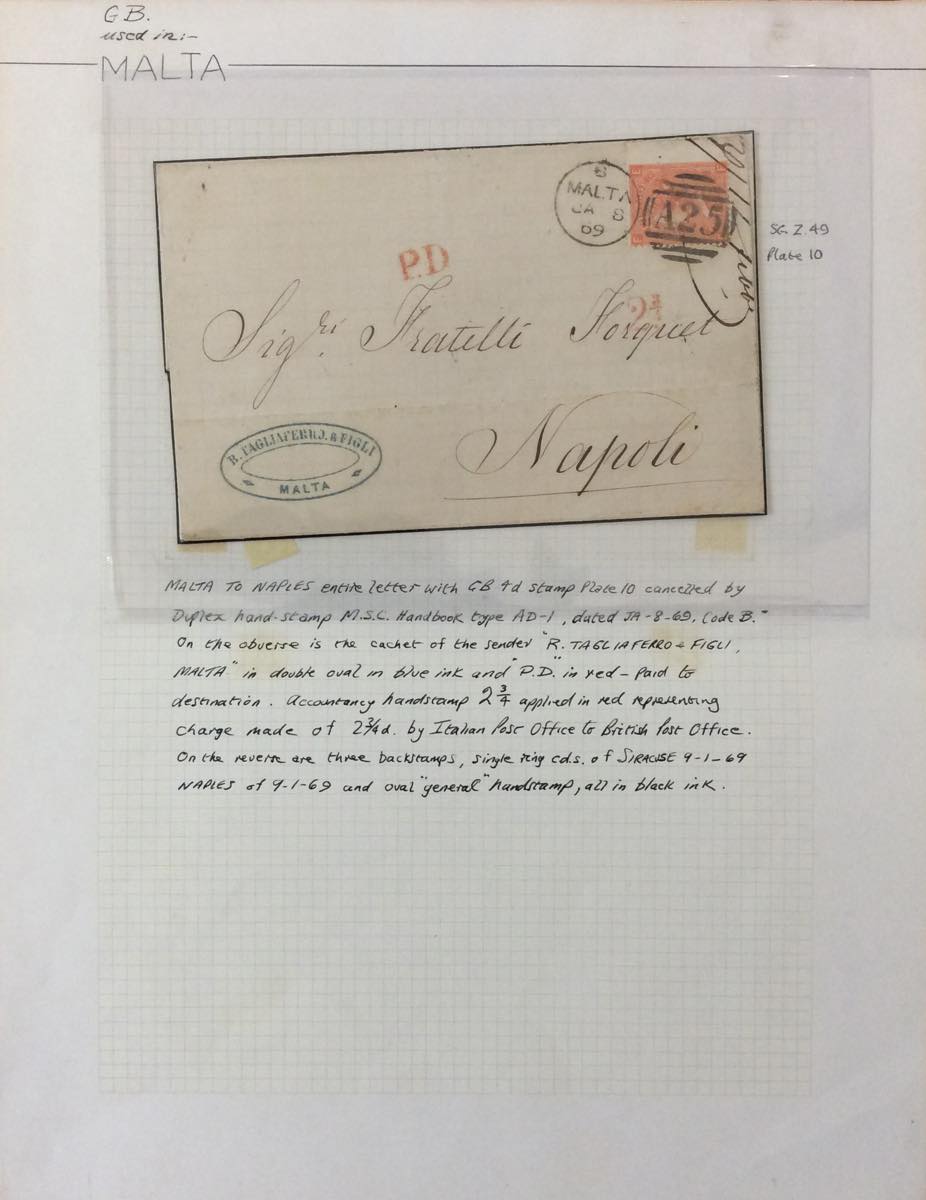 GB.
used in:-
MALTA
B
MALTA
JA 8
69
A25
SG Z.49
Plate 10
P.D
2¾
Sigri. Fratelli Forquet
Napoli
R. TAGLIAFERRO. & FIGLI
MALTA
MALTA TO NAPLES entire letter with GB 4d stamp Plate 10 cancelled by
Duplex hand-stamp M.S.C. Handbook type AD-1, dated JA-8-69. Code B.-
On the obverse is the cachet of the sender "R. TAGLIAFERRO & FIGLI,
MALTA" in double oval in blue ink and "P.D." in red - Paid to
destination. Accountancy handstamp 2¾ applied in red representing
charge made of 2¾d. by Italian Post Office to British Post Office.
On the reverse are three backstamps, single ring cds. of SIRACUSE 9-1-69
NAPLES of 9-1-69 and oval "general" handstamp, all in black ink.